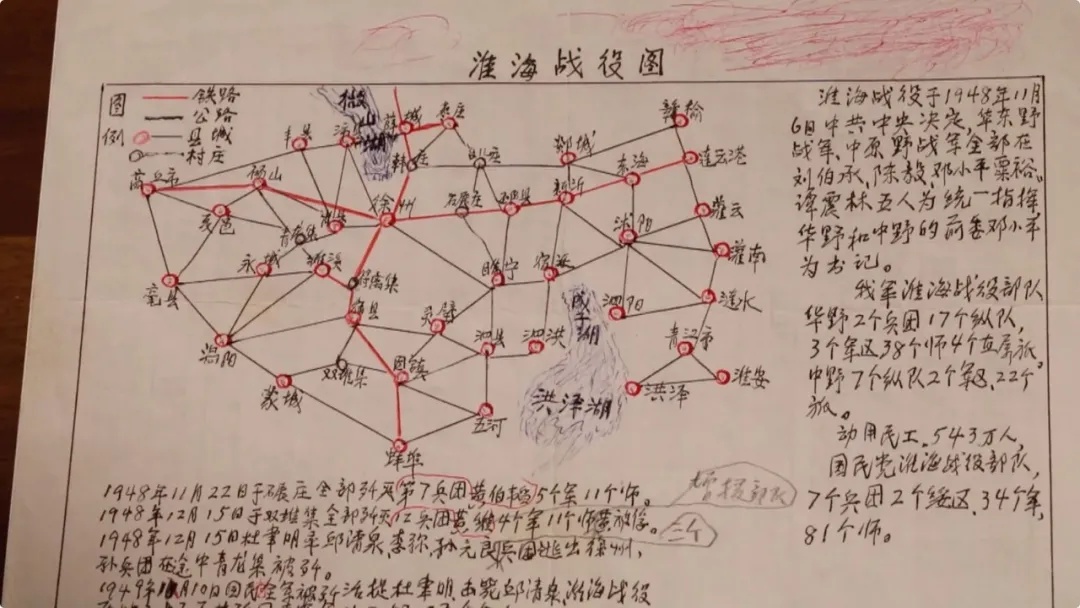 淮海战役图
图例
铁路
公路
县城
村庄
微山湖
赣榆
丰县
郯城
连云港
东海
商丘市
砀山
徐州
新沂
灌云
夏邑
沭阳
青龙集
永城
灌南
睢宁
宿迁
亳县
涟水
泗阳
成子湖
灵璧
泗县
泗洪
涡阳
双堆集
固镇
淮安
蒙城
洪泽
洪泽湖
五河
蚌埠
淮海战役于1948年11月
6日中共中央决定,华东野
战军,中原野战军全部在
刘伯承,陈毅,邓小平粟裕。
谭震林五人为统一指挥
华野和中野的前委邓小平
为书记。
我军淮海战役部队
华野2个兵团17个纵队,
3个军区38个师4个直属旅,
中野7个纵队2个军区,22个
旅。
动用民工,543万人,
国民党淮海战役部队,
7个兵团2个绥区,34个军,
81个师。
1948年11月22日于碾庄全部歼灭第7兵团黄伯韬5个军11个师。
增援部队
1948年12月15日于双堆集全部歼灭12兵团黄维4个军11个师
二个
1948年12月15日杜聿明率邱清泉,李弥,孙元良兵团逃出徐州,
孙兵团在途中青龙集被歼。
1949年1月10日国民全军被歼活捉杜聿明,击毙邱清泉,淮海战役